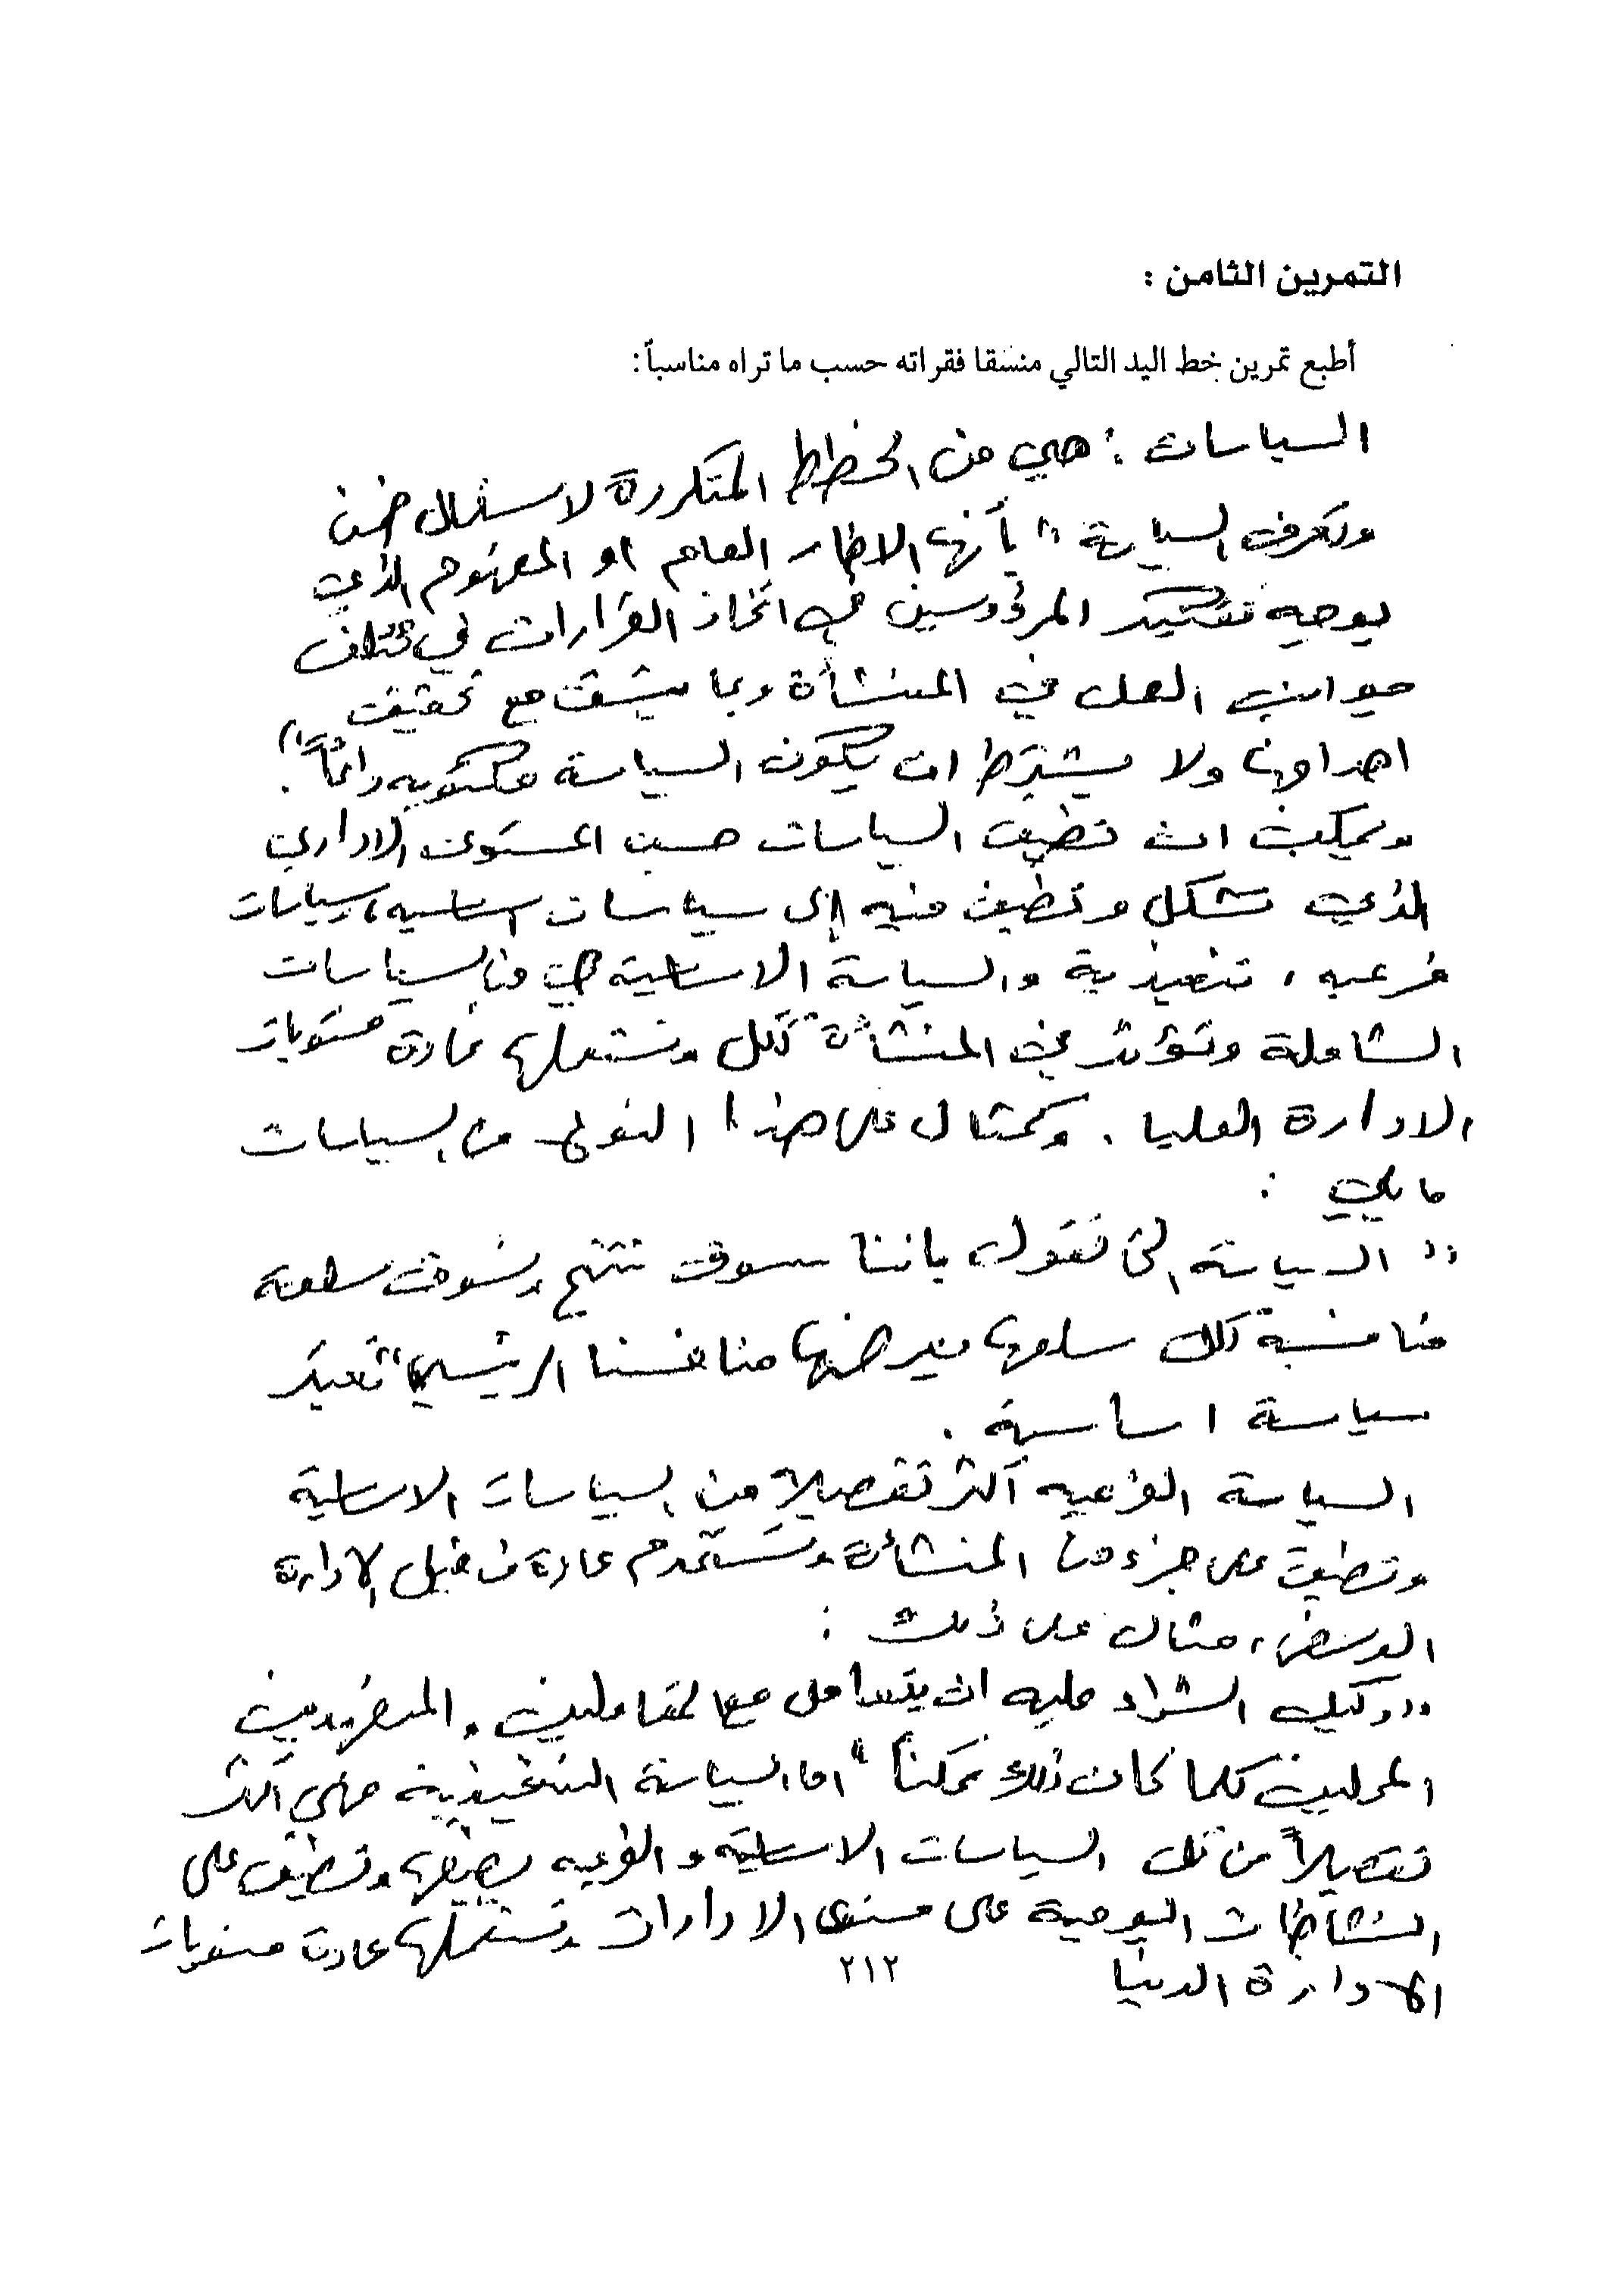 التمرين الثامن :
أطبع تمرين بخط اليد التالي منسقا فقراته حسب ما تراه مناسباً:
السياسات : هي من الخطط المتكررة لاستعمال ضمن
وتعرف السياسة " بأنها الاطار العام او المفهوم الذي
يوجه تفكير المرؤوسين في اتخاذ القرارات في مختلف
جوانب العمل في المنشأة وبما يتسق مع تحقيق
اهدافها ولا يشترط ان يكون السياسة مكتوبه دائماً".
ويمكن ان تصنيف السياسات حسب المستوى الاداري
الذي تشكل وتطبق فيه إلى سياسات اساسيه، وسياسات
فرعيه ، تنفيذية والسياسة الاساسية هي من السياسات
الشاملة وتؤثر في المنشأة ككل وتستعملها عادة مستويات
الادارة العليا . وكمثال على هذا النوع من السياسات
مايلي :
" السياسة التي تقول باننا سوف ننتج ونسوق سلعة
منافسة لكل سلعة يعرضها منافسنا الرئيسي" تعتبر
سياسة اساسية .
السياسة الفرعيه أكثر تفصيلا من السياسات الاساسية
وتطبق على جزء من المنشأة وتستخدم عادة من قبل الادارة
الوسطى ، مثال على ذلك :
"وكيل الشراء عليه ان يتعامل مع المقاولين والمتعهدين
المحليين كلما كان ذلك ممكناً" اما السياسة التنفيذية فهي أكثر
تفصيلاً من تلك السياسات الاساسية والفرعيه بطبيعتها وتطبق على
النشاطات اليومية على مستوى الادارات وتستعملها عادة مستويات
الادارة الدنيا
٢١٢